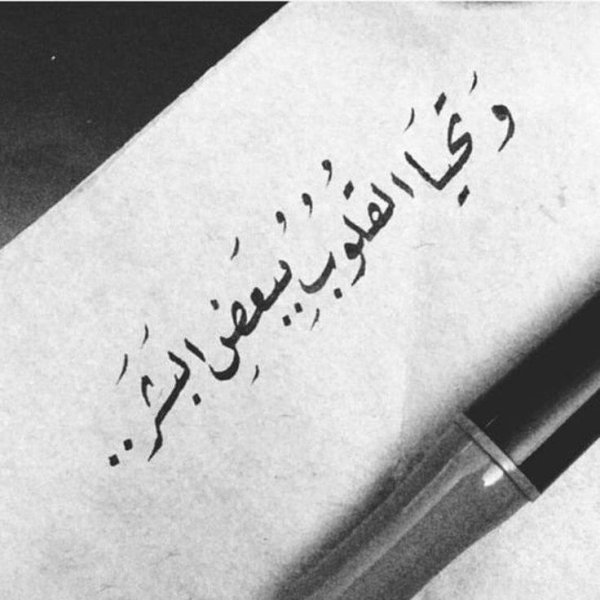 وَتَحيَا القلوبُ ببعَضِ البَشَرَ..